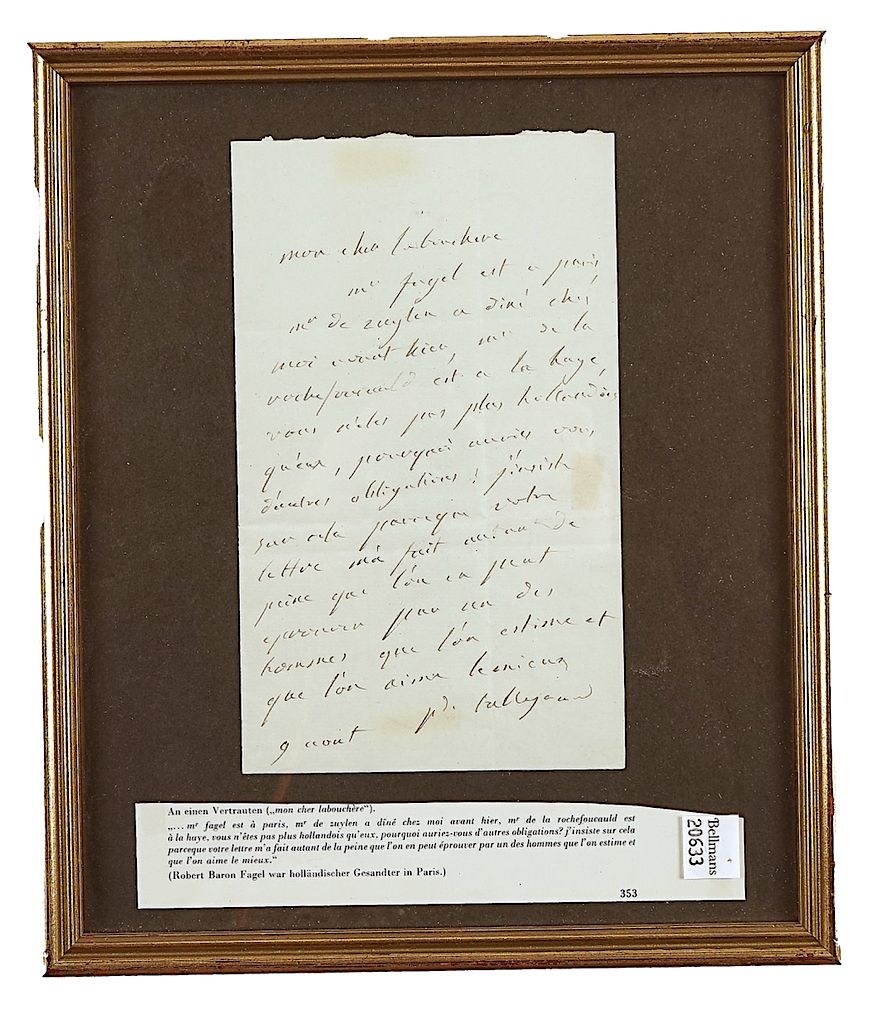 mon cher labouchere
mr fagel est a paris
mr de zuylen a diné chéz
moi avant hier, mr de la
rochefoucauld est a la haye,
vous n'etes pas plus hollandois
qu'eux, pourquoi auriez vous
d'autres obligations? j'insiste
sur cela parceque votre
lettre m'a fait autant de
peine que l'on en peut
eprouver par un des
hommes que l'on estime et
que l'on aime le mieux
9 aout pce de talleyrand
An einen Vertrauten („mon cher labouchère“).
„... mr fagel est à paris, mr de zuylen a dîné chez moi avant hier, mr de la rochefoucauld est
à la haye, vous n'êtes pas plus hollandois qu'eux, pourquoi auriez-vous d'autres obligations? j'insiste sur cela
parceque votre lettre m'a fait autant de la peine que l'on en peut éprouver par un des hommes que l'on estime et
que l'on aime le mieux.“
(Robert Baron Fagel war holländischer Gesandter in Paris.)
353
Bellmans
20633